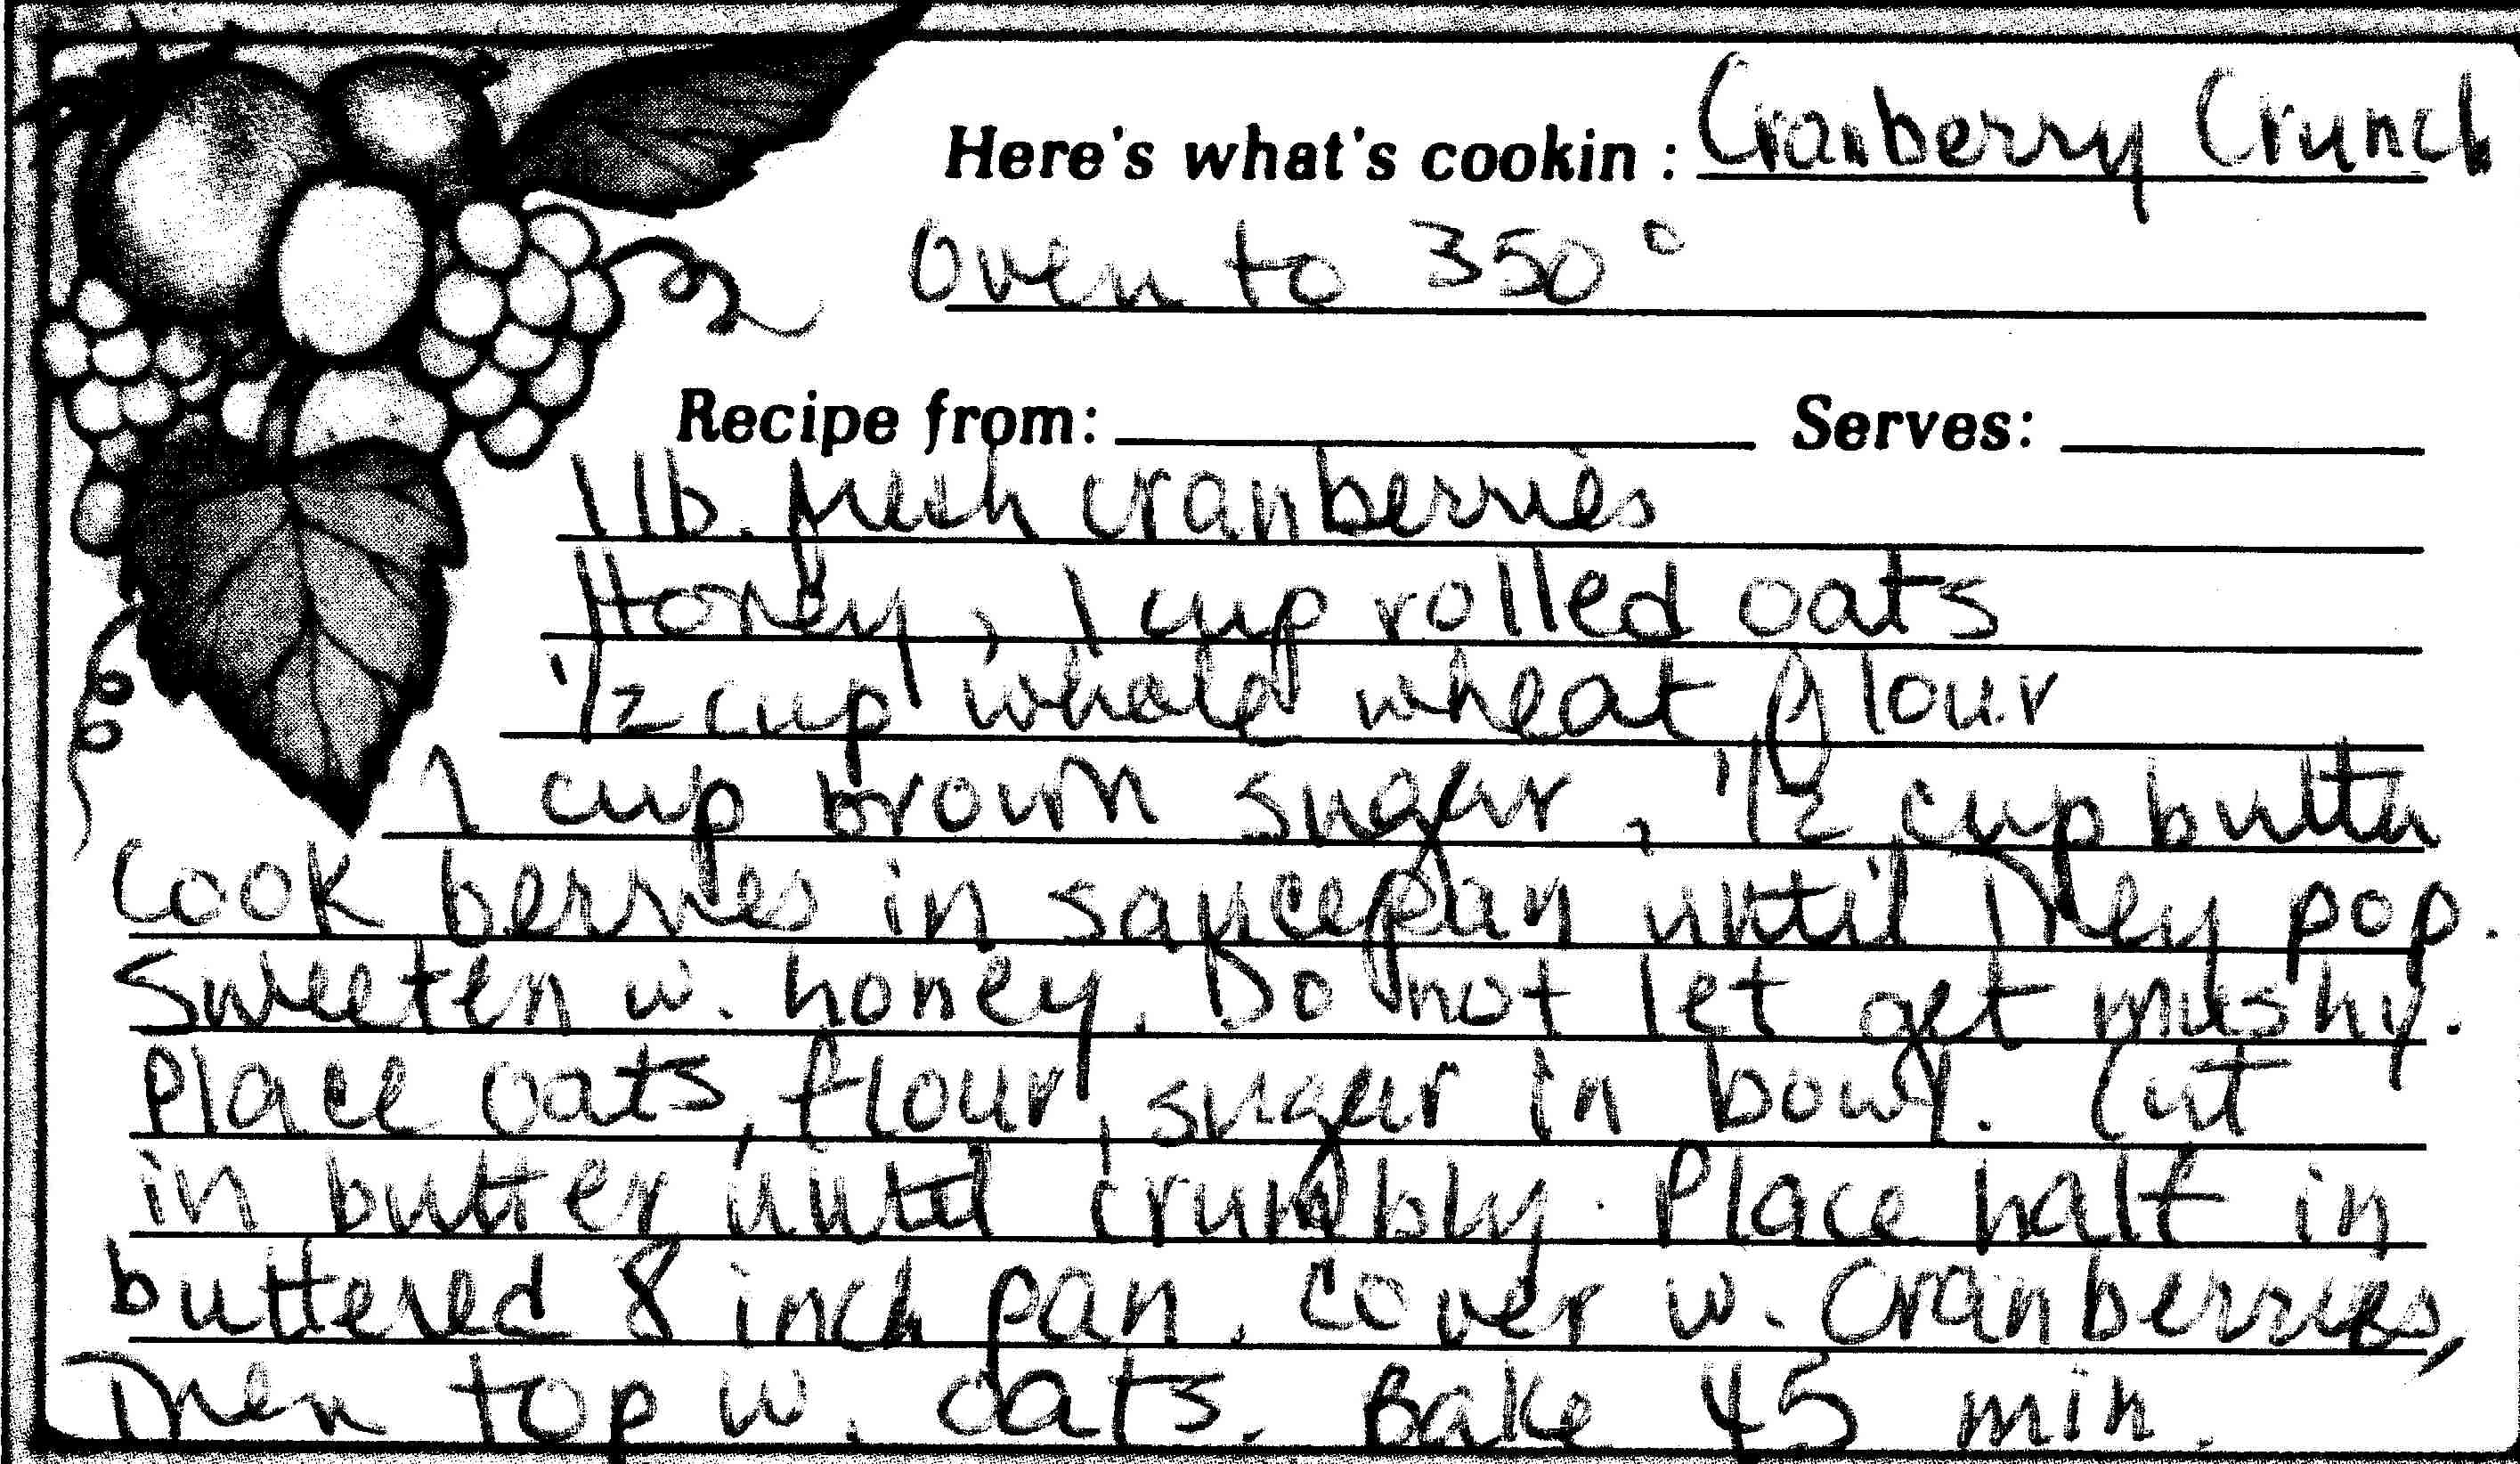 Here's what's cookin : Cranberry Crunch
Oven to 350°
Recipe from: Serves:
1 lb. fresh cranberries
Honey, 1 cup rolled oats
1/2 cup whole wheat flour
1 cup brown sugar, 1/2 cup butter
Cook berries in saucepan until They pop.
Sweeten w. honey. Do not let get mushy.
Place oats, flour, sugar in bowl. Cut
in butter until crumbly. Place half in
buttered 8 inch pan, cover w. Cranberries,
Then top w. oats. Bake 45 min.